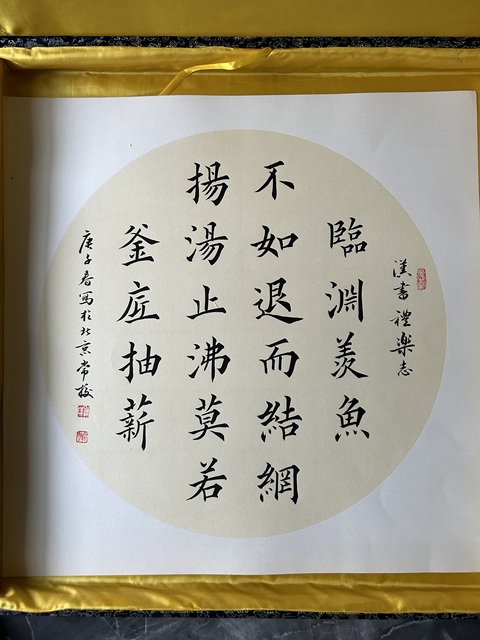 漢書禮樂志
臨淵羨魚
不如退而結網
揚湯止沸莫若
釜底抽薪
庚子春写於北京常